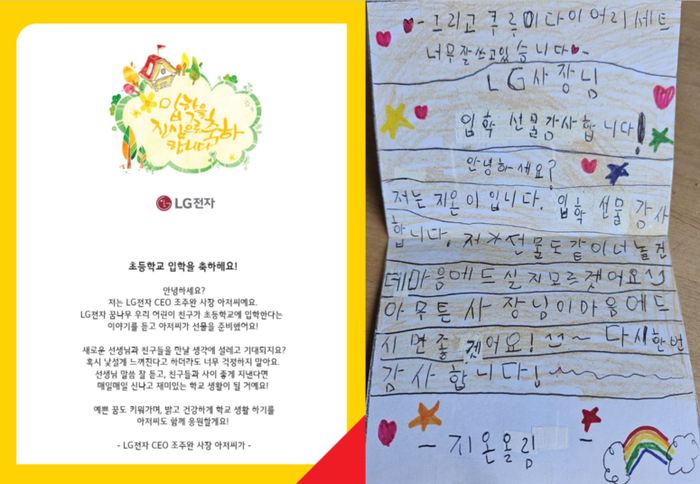 입학을
진심으로 축하
합니다
LG전자
초등학교 입학을 축하해요!
안녕하세요?
저는 LG전자 CEO 조주완 사장 아저씨예요.
LG전자 꿈나무 우리 어린이 친구가 초등학교에 입학한다는
이야기를 듣고 아저씨가 선물을 준비했어요!
새로운 선생님과 친구들을 만날 생각에 설레고 기대되지요?
혹시 낯설게 느껴진다고 하더라도 너무 걱정하지 말아요.
선생님 말씀 잘 듣고, 친구들과 사이 좋게 지낸다면
매일매일 신나고 재미있는 학교 생활이 될 거예요!
예쁜 꿈도 키워가며, 밝고 건강하게 학교 생활 하기를
아저씨도 함께 응원할게요!
- LG전자 CEO 조주완 사장 아저씨가 -
- 그리고 쿠루미 다이어리세트
너무잘쓰고있습니다
LG사장님
입학 선물감사합니다!
안녕하세요?
저는 지온이입니다. 입학 선물 감사
합니다. 저 선물도 같이 너놀건
데 마음에 드실지 모르겠어요
아무튼 사장님이 마음에 드
시면 좋겠어요! ~ 다시한번
감사합니다!
- 지온올림 -